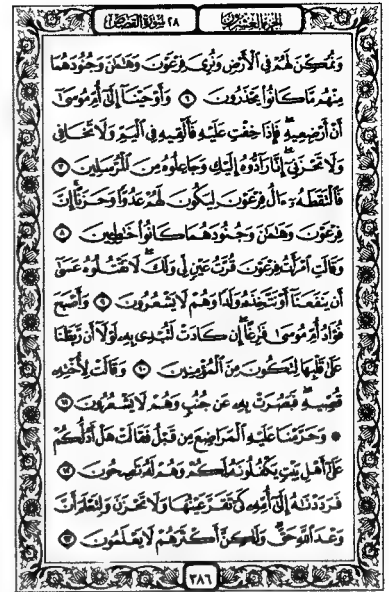 الجزء العشرون
٢٨ سورة القصص
وَنُمَكِّنَ لَهُمْ فِي ٱلْأَرْضِ وَنُرِيَ فِرْعَوْنَ وَهَٰمَٰنَ وَجُنُودَهُمَا
مِنْهُم مَّا كَانُوا۟ يَحْذَرُونَ ٦ وَأَوْحَيْنَآ إِلَىٰٓ أُمِّ مُوسَىٰٓ
أَنْ أَرْضِعِيهِ ۖ فَإِذَا خِفْتِ عَلَيْهِ فَأَلْقِيهِ فِي ٱلْيَمِّ وَلَا تَخَافِي
وَلَا تَحْزَنِيٓ ۖ إِنَّا رَآدُّوهُ إِلَيْكِ وَجَاعِلُوهُ مِنَ ٱلْمُرْسَلِينَ ٧
فَٱلْتَقَطَهُۥٓ ءَالُ فِرْعَوْنَ لِيَكُونَ لَهُمْ عَدُوًّا وَحَزَنًا ۗ إِنَّ
فِرْعَوْنَ وَهَٰمَٰنَ وَجُنُودَهُمَا كَانُوا۟ خَٰطِـِٔينَ ٨
وَقَالَتِ ٱمْرَأَتُ فِرْعَوْنَ قُرَّتُ عَيْنٍ لِّي وَلَكَ ۖ لَا تَقْتُلُوهُ عَسَىٰٓ
أَن يَنفَعَنَآ أَوْ نَتَّخِذَهُۥ وَلَدًا وَهُمْ لَا يَشْعُرُونَ ٩ وَأَصْبَحَ
فُؤَادُ أُمِّ مُوسَىٰ فَٰرِغًا ۖ إِن كَادَتْ لَتُبْدِي بِهِۦ لَوْلَآ أَن رَّبَطْنَا
عَلَىٰ قَلْبِهَا لِتَكُونَ مِنَ ٱلْمُؤْمِنِينَ ١٠ وَقَالَتْ لِأُخْتِهِۦ
قُصِّيهِ ۖ فَبَصُرَتْ بِهِۦ عَن جُنُبٍ وَهُمْ لَا يَشْعُرُونَ ١١
۞ وَحَرَّمْنَا عَلَيْهِ ٱلْمَرَاضِعَ مِن قَبْلُ فَقَالَتْ هَلْ أَدُلُّكُمْ
عَلَىٰٓ أَهْلِ بَيْتٍ يَكْفُلُونَهُۥ لَكُمْ وَهُمْ لَهُۥ نَٰصِحُونَ ١٢
فَرَدَدْنَٰهُ إِلَىٰٓ أُمِّهِۦ كَيْ تَقَرَّ عَيْنُهَا وَلَا تَحْزَنَ وَلِتَعْلَمَ أَنَّ
وَعْدَ ٱللَّهِ حَقٌّ وَلَٰكِنَّ أَكْثَرَهُمْ لَا يَعْلَمُونَ ١٣
٣٨٦